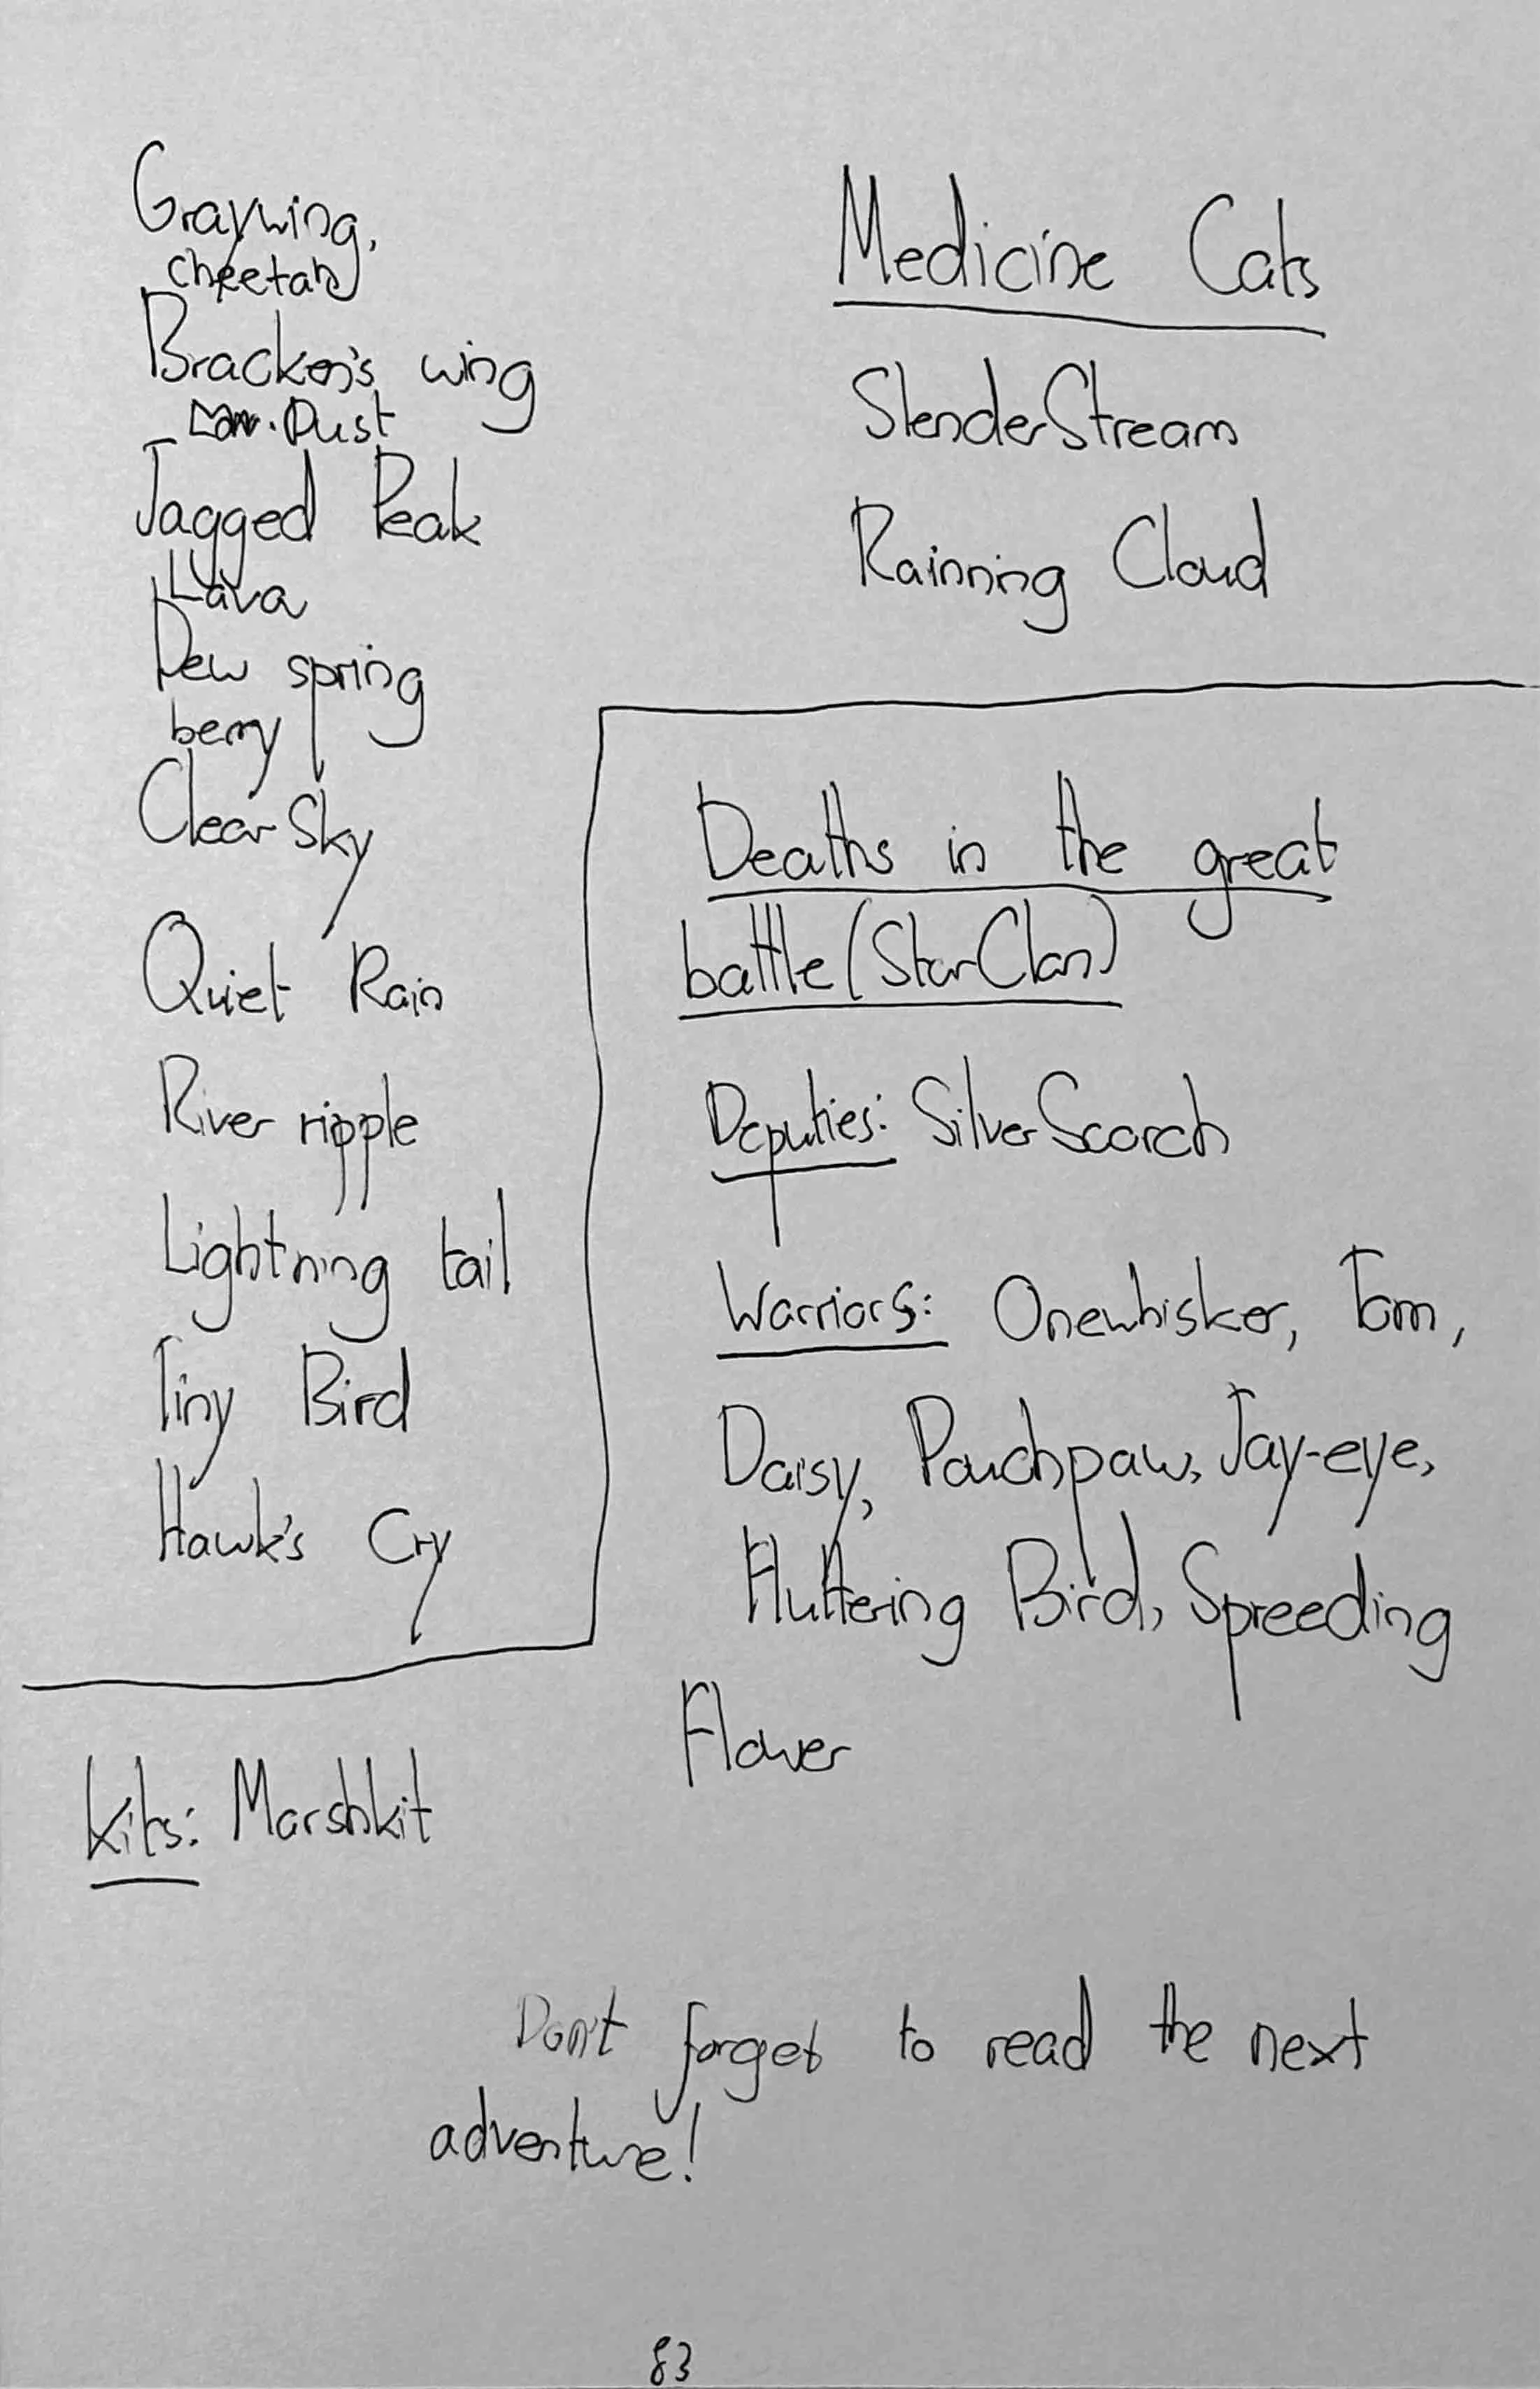 Graywing,
cheetah
Bracken's wing
Dust
Jagged Peak
Lava
Dew spring
berry
Clear Sky
Quiet Rain
River ripple
Lightning tail
Tiny Bird
Hawk's Cry
Medicine Cats
SlenderStream
Rainning Cloud
Deaths in the great
battle (StarClan)
Deputies: SilverScorch
Warriors: Onewhisker, Tom,
Daisy, Pouchpaw, Jay-eye,
Fluttering Bird, Spreeding
Flower
Kits: Marshkit
Don't forget to read the next
adventure!
83